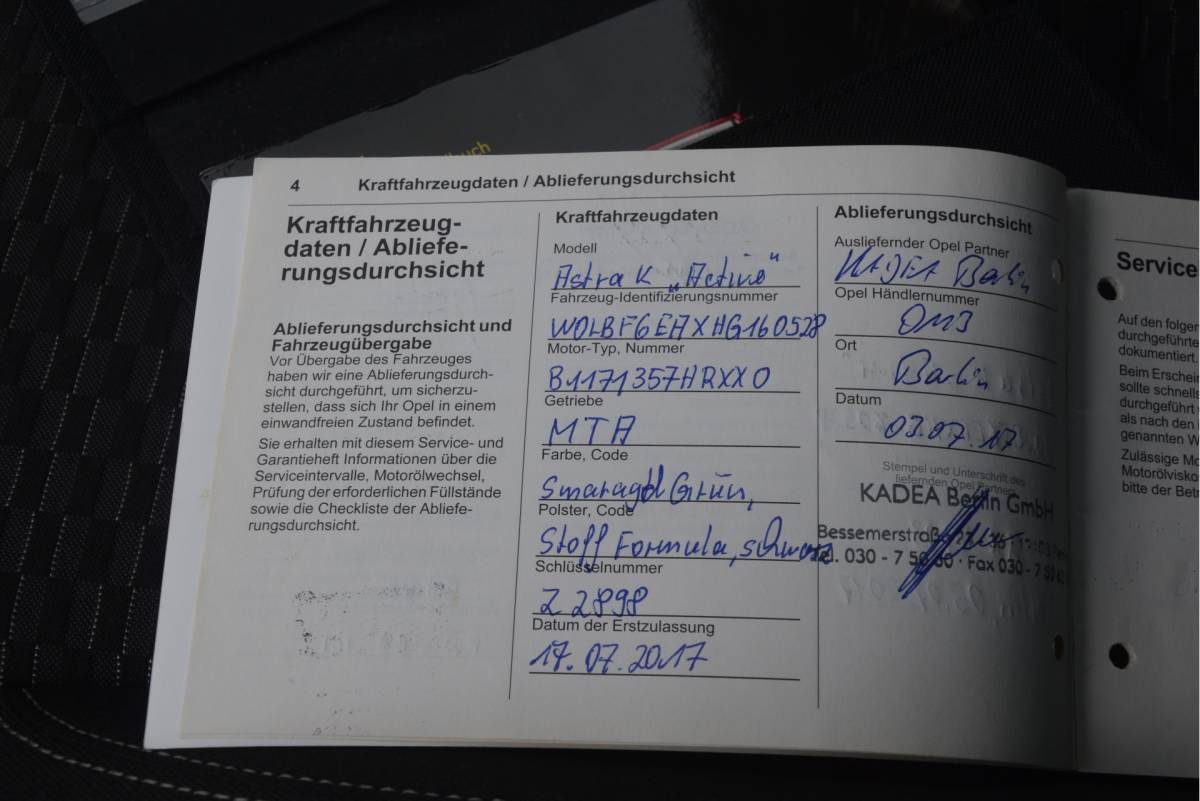 buch
4 Kraftfahrzeugdaten / Ablieferungsdurchsicht
Kraftfahrzeug-
daten / Abliefe-
rungsdurchsicht
Ablieferungsdurchsicht und
Fahrzeugübergabe
Vor Übergabe des Fahrzeuges
haben wir eine Ablieferungsdurch-
sicht durchgeführt, um sicherzu-
stellen, dass sich Ihr Opel in einem
einwandfreien Zustand befindet.
Sie erhalten mit diesem Service- und
Garantieheft Informationen über die
Serviceintervalle, Motorölwechsel,
Prüfung der erforderlichen Füllstände
sowie die Checkliste der Abliefe-
rungsdurchsicht.
Kraftfahrzeugdaten
Modell
Astra K „Active“
Fahrzeug-Identifizierungsnummer
W0LBF6EAXHG160528
Motor-Typ, Nummer
B1171357HRXX0
Getriebe
MTA
Farbe, Code
Smaragd Grün,
Polster, Code
Stoff Formula, schwarz
Schlüsselnummer
Z 2898
Datum der Erstzulassung
17.07.2017
Ablieferungsdurchsicht
Ausliefernder Opel Partner
KADEA Berlin
Opel Händlernummer
0113
Ort
Berlin
Datum
03.07.17
Stempel und Unterschrift des
liefernden Opel Partners
KADEA Berlin GmbH
Bessemerstraße
Tel. 030 - 7 56 80 · Fax 030 - 7 56 80
Service
Auf den folger
durchgeführte
dokumentiert.
Beim Erschei
sollte schnells
durchgeführt
als nach den
genannten W
Zulässige Mo
Motorölvisko
bitte der Betr